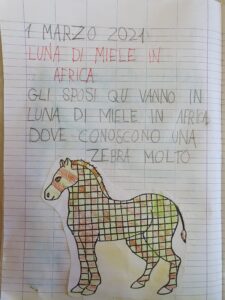 1 MARZO 2021
LUNA DI MIELE IN
AFRICA
GLI SPOSI QU VANNO IN
LUNA DI MIELE IN AFRICA
DOVE CONOSCONO UNA
ZEBRA MOLTO